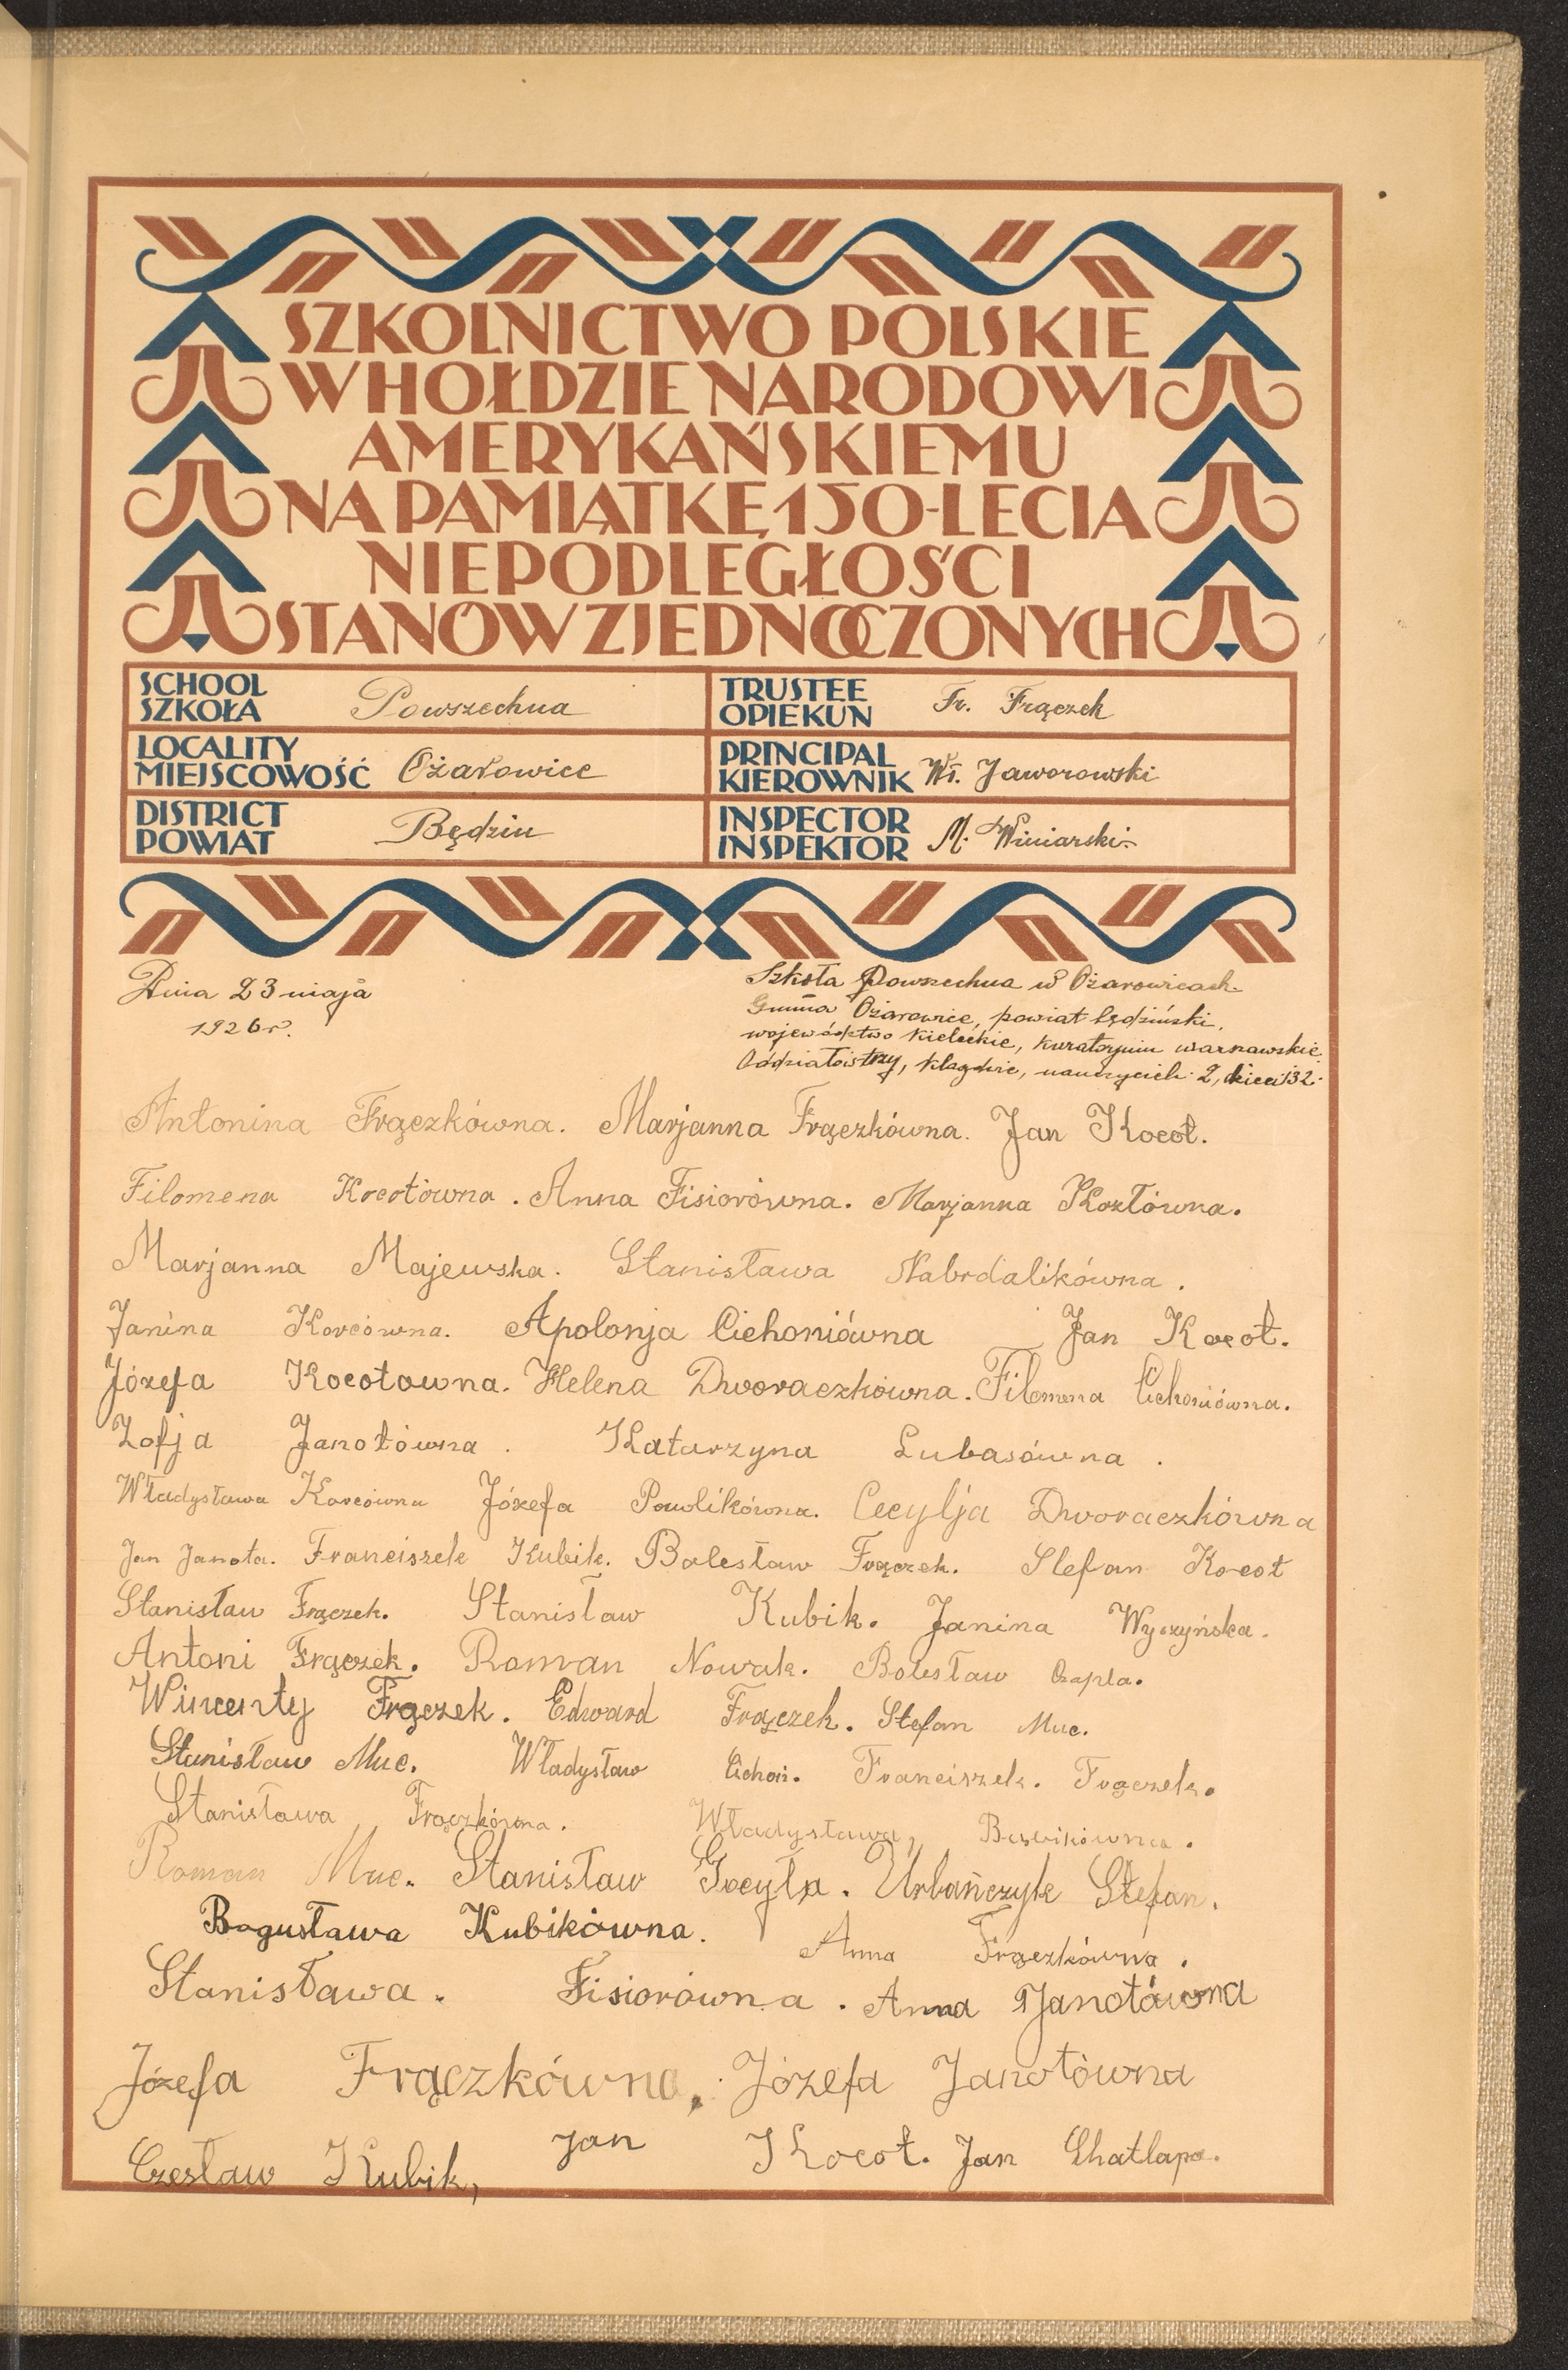 SZKOLNICTWO POLSKIE
W HOŁDZIE NARODOWI
AMERYKAŃSKIEMU
NA PAMIĄTKĘ 150-LECIA
NIEPODLEGŁOŚCI
STANÓW ZJEDNOCZONYCH
SCHOOL
SZKOŁA Powszechna
TRUSTEE
OPIEKUN Fr. Frączek
LOCALITY
MIEJSCOWOŚĆ Ożarowice
PRINCIPAL
KIEROWNIK Wł. Jaworowski
DISTRICT
POWIAT Będzin
INSPECTOR
INSPEKTOR M. Winiarski
Dnia 23 maja
1926 r.
Szkoła Powszechna w Ożarowicach
Gmina Ożarowice, powiat będziński,
województwo kieleckie, kuratorjum warszawskie.
Oddziałów trzy, nauczycieli 2, dzieci 132.
Antonina Frączkówna. Marjanna Frączkówna. Jan Kocot.
Filomena Kocotówna. Anna Fisiorówna. Marjanna Kozłówna.
Marjanna Majewska. Stanisława Nabrdalikówna.
Janina Korcówna. Apolonja Cichoniówna Jan Kocot.
Józefa Kocotowna. Helena Dworaczkówna. Filomena Cichoniówna.
Zofja Janotówna. Katarzyna Lubasówna.
Władysława Korcówna Józefa Pawlikówna. Cecylja Dworaczkówna
Jan Janota. Franciszek Kubik. Bolesław Frączek. Stefan Kocot
Stanisław Frączek. Stanisław Kubik. Janina Wyczyńska.
Antoni Frączek. Roman Nowak. Bolesław Czapla.
Wincenty Frączek. Edward Frączek. Stefan Muc.
Stanisław Muc. Władysław Cichoń. Franciszek. Frączek.
Stanisława Frączkówna. Władysława,
Roman Muc. Stanisław Gocyła. Urbańczyk Stefan.
Bogusława Kubikówna. Anna Frączkówna.
Stanisława. Fisiorówna. Anna Janotówna
Józefa Frączkówna, Józefa Janotówna
Czesław Kubik, Jan Kocot. Jan Chatlapa.